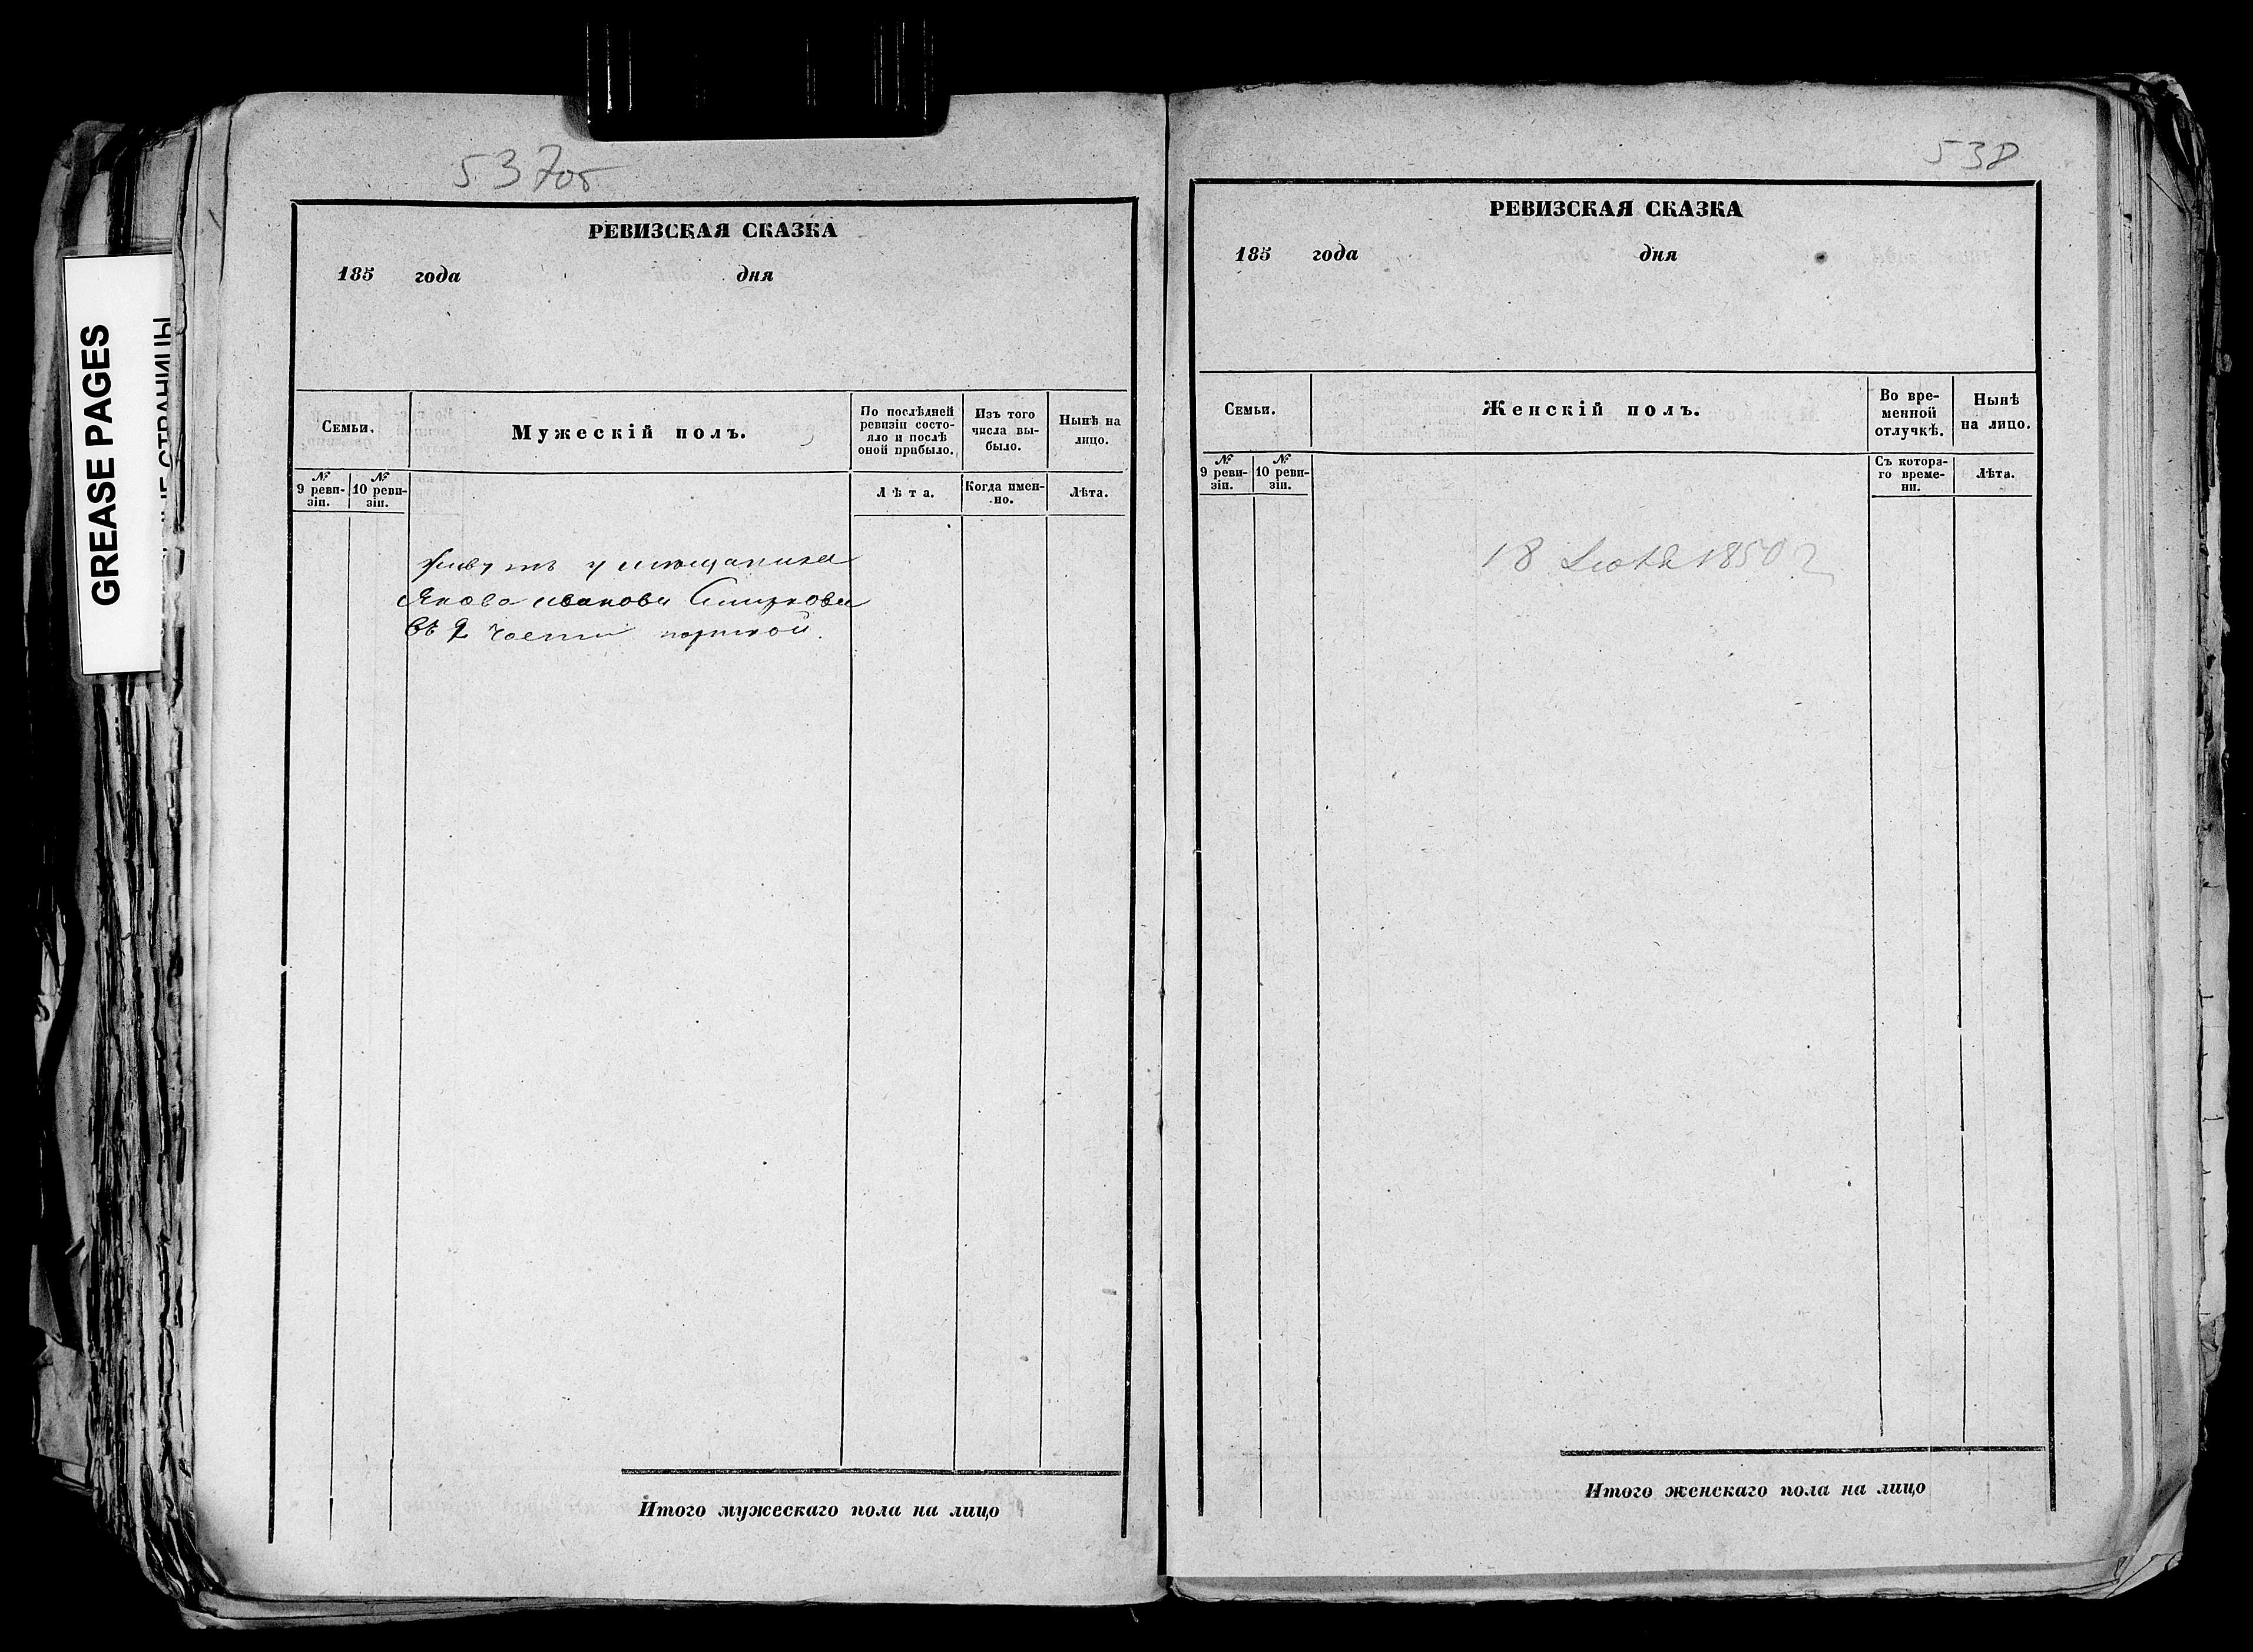 GREASE PAGES
537об
РЕВИЗСКАЯ СКАЗКА
185 года дня
Семьи.
Мужескій полъ.
По послѣдней
ревизіи состо-
яло и послѣ
оной прибыло.
Изъ того
числа вы-
было.
Нынѣ на
лицо.
№
9 реви-
зіи.
№
10 реви-
зіи.
Лѣта.
Когда имен-
но.
Лѣта.
живутъ у мѣщанина
Якова иванова Смирнова
въ 2 части
Итого мужескаго пола на лицо
538
РЕВИЗСКАЯ СКАЗКА
185 года дня
Семьи.
Женскій полъ.
Во вре-
менной
отлучкѣ.
Нынѣ
на лицо.
№
9 реви-
зіи.
№
10 реви-
зіи.
Съ котора-
го време-
ни.
Лѣта.
18 1850
Итого женскаго пола на лицо